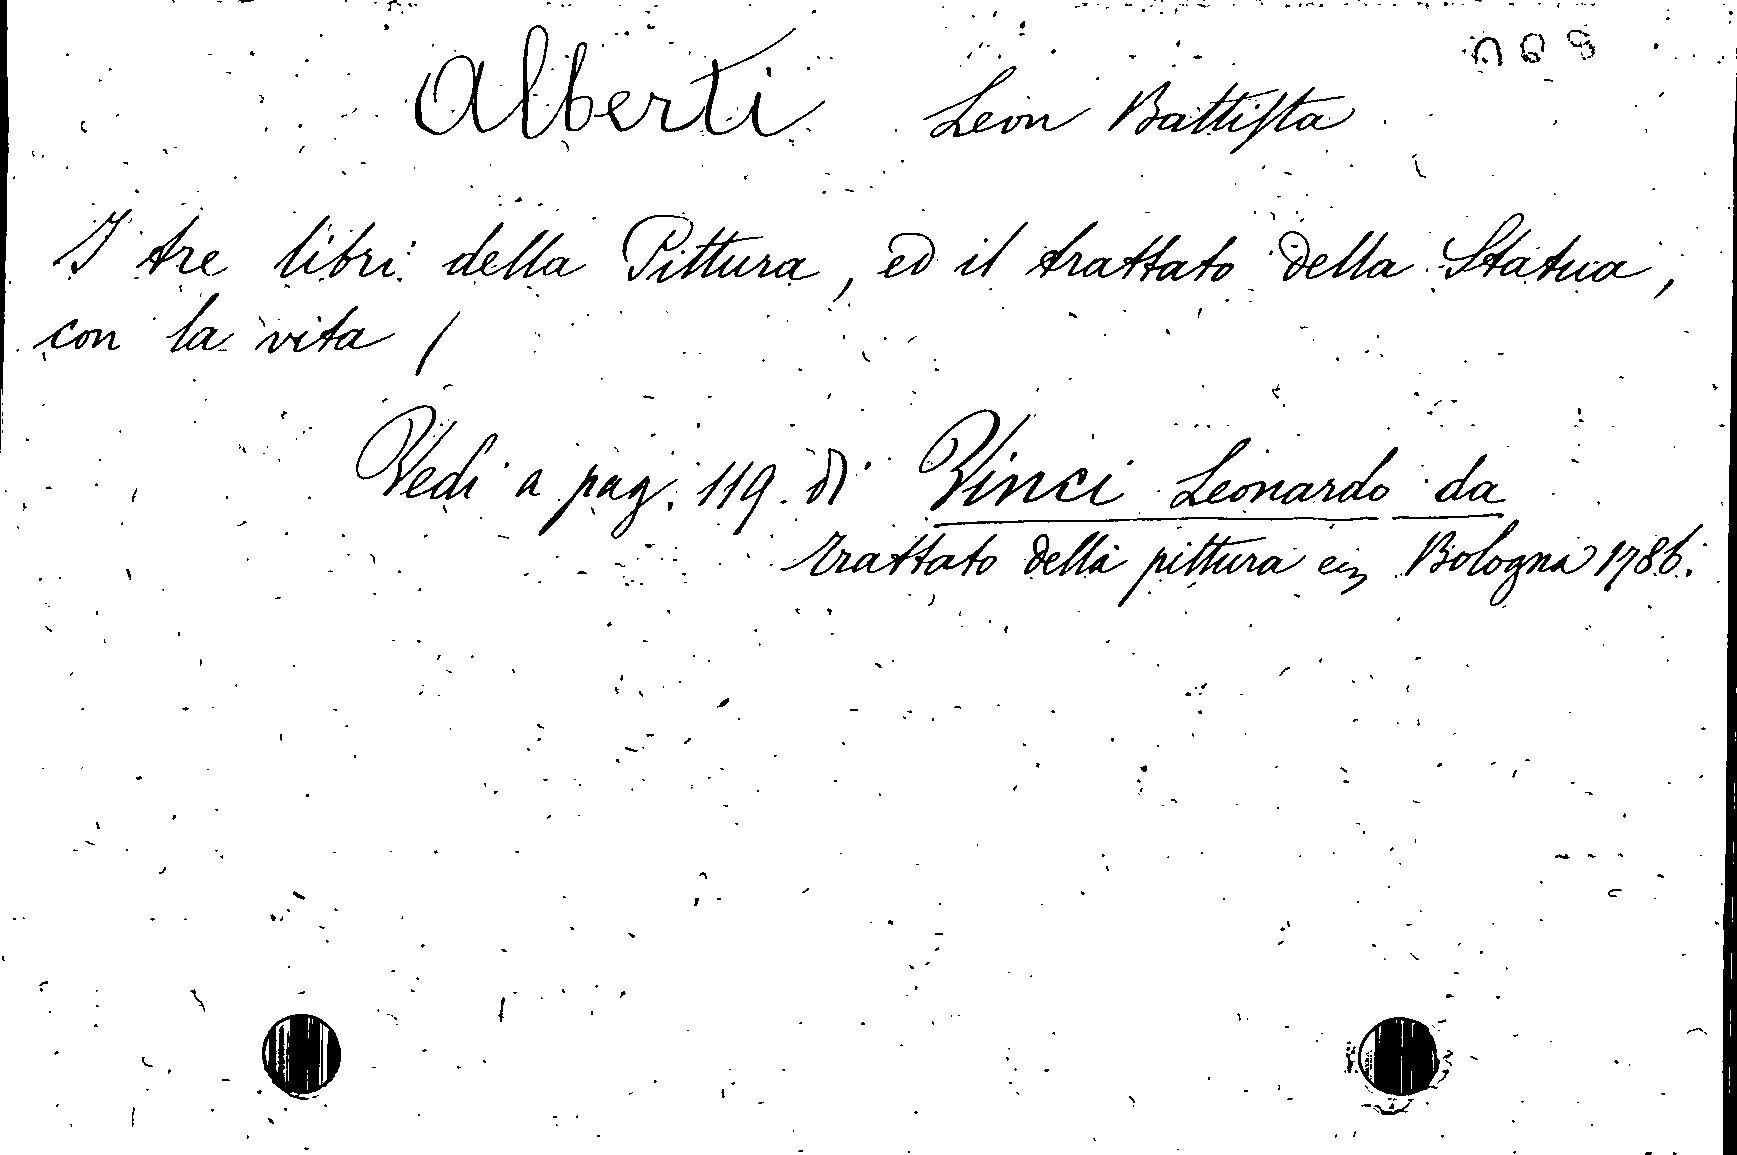 Alberti Leon Battista
I tre libri della Pittura, ed il trattato della Statua,
con la vita /
Vedi a pag. 119 di Vinci Leonardo da
trattato della pittura Bologna 1786.